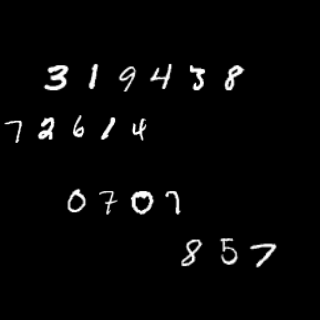 319438
72614
0707
857